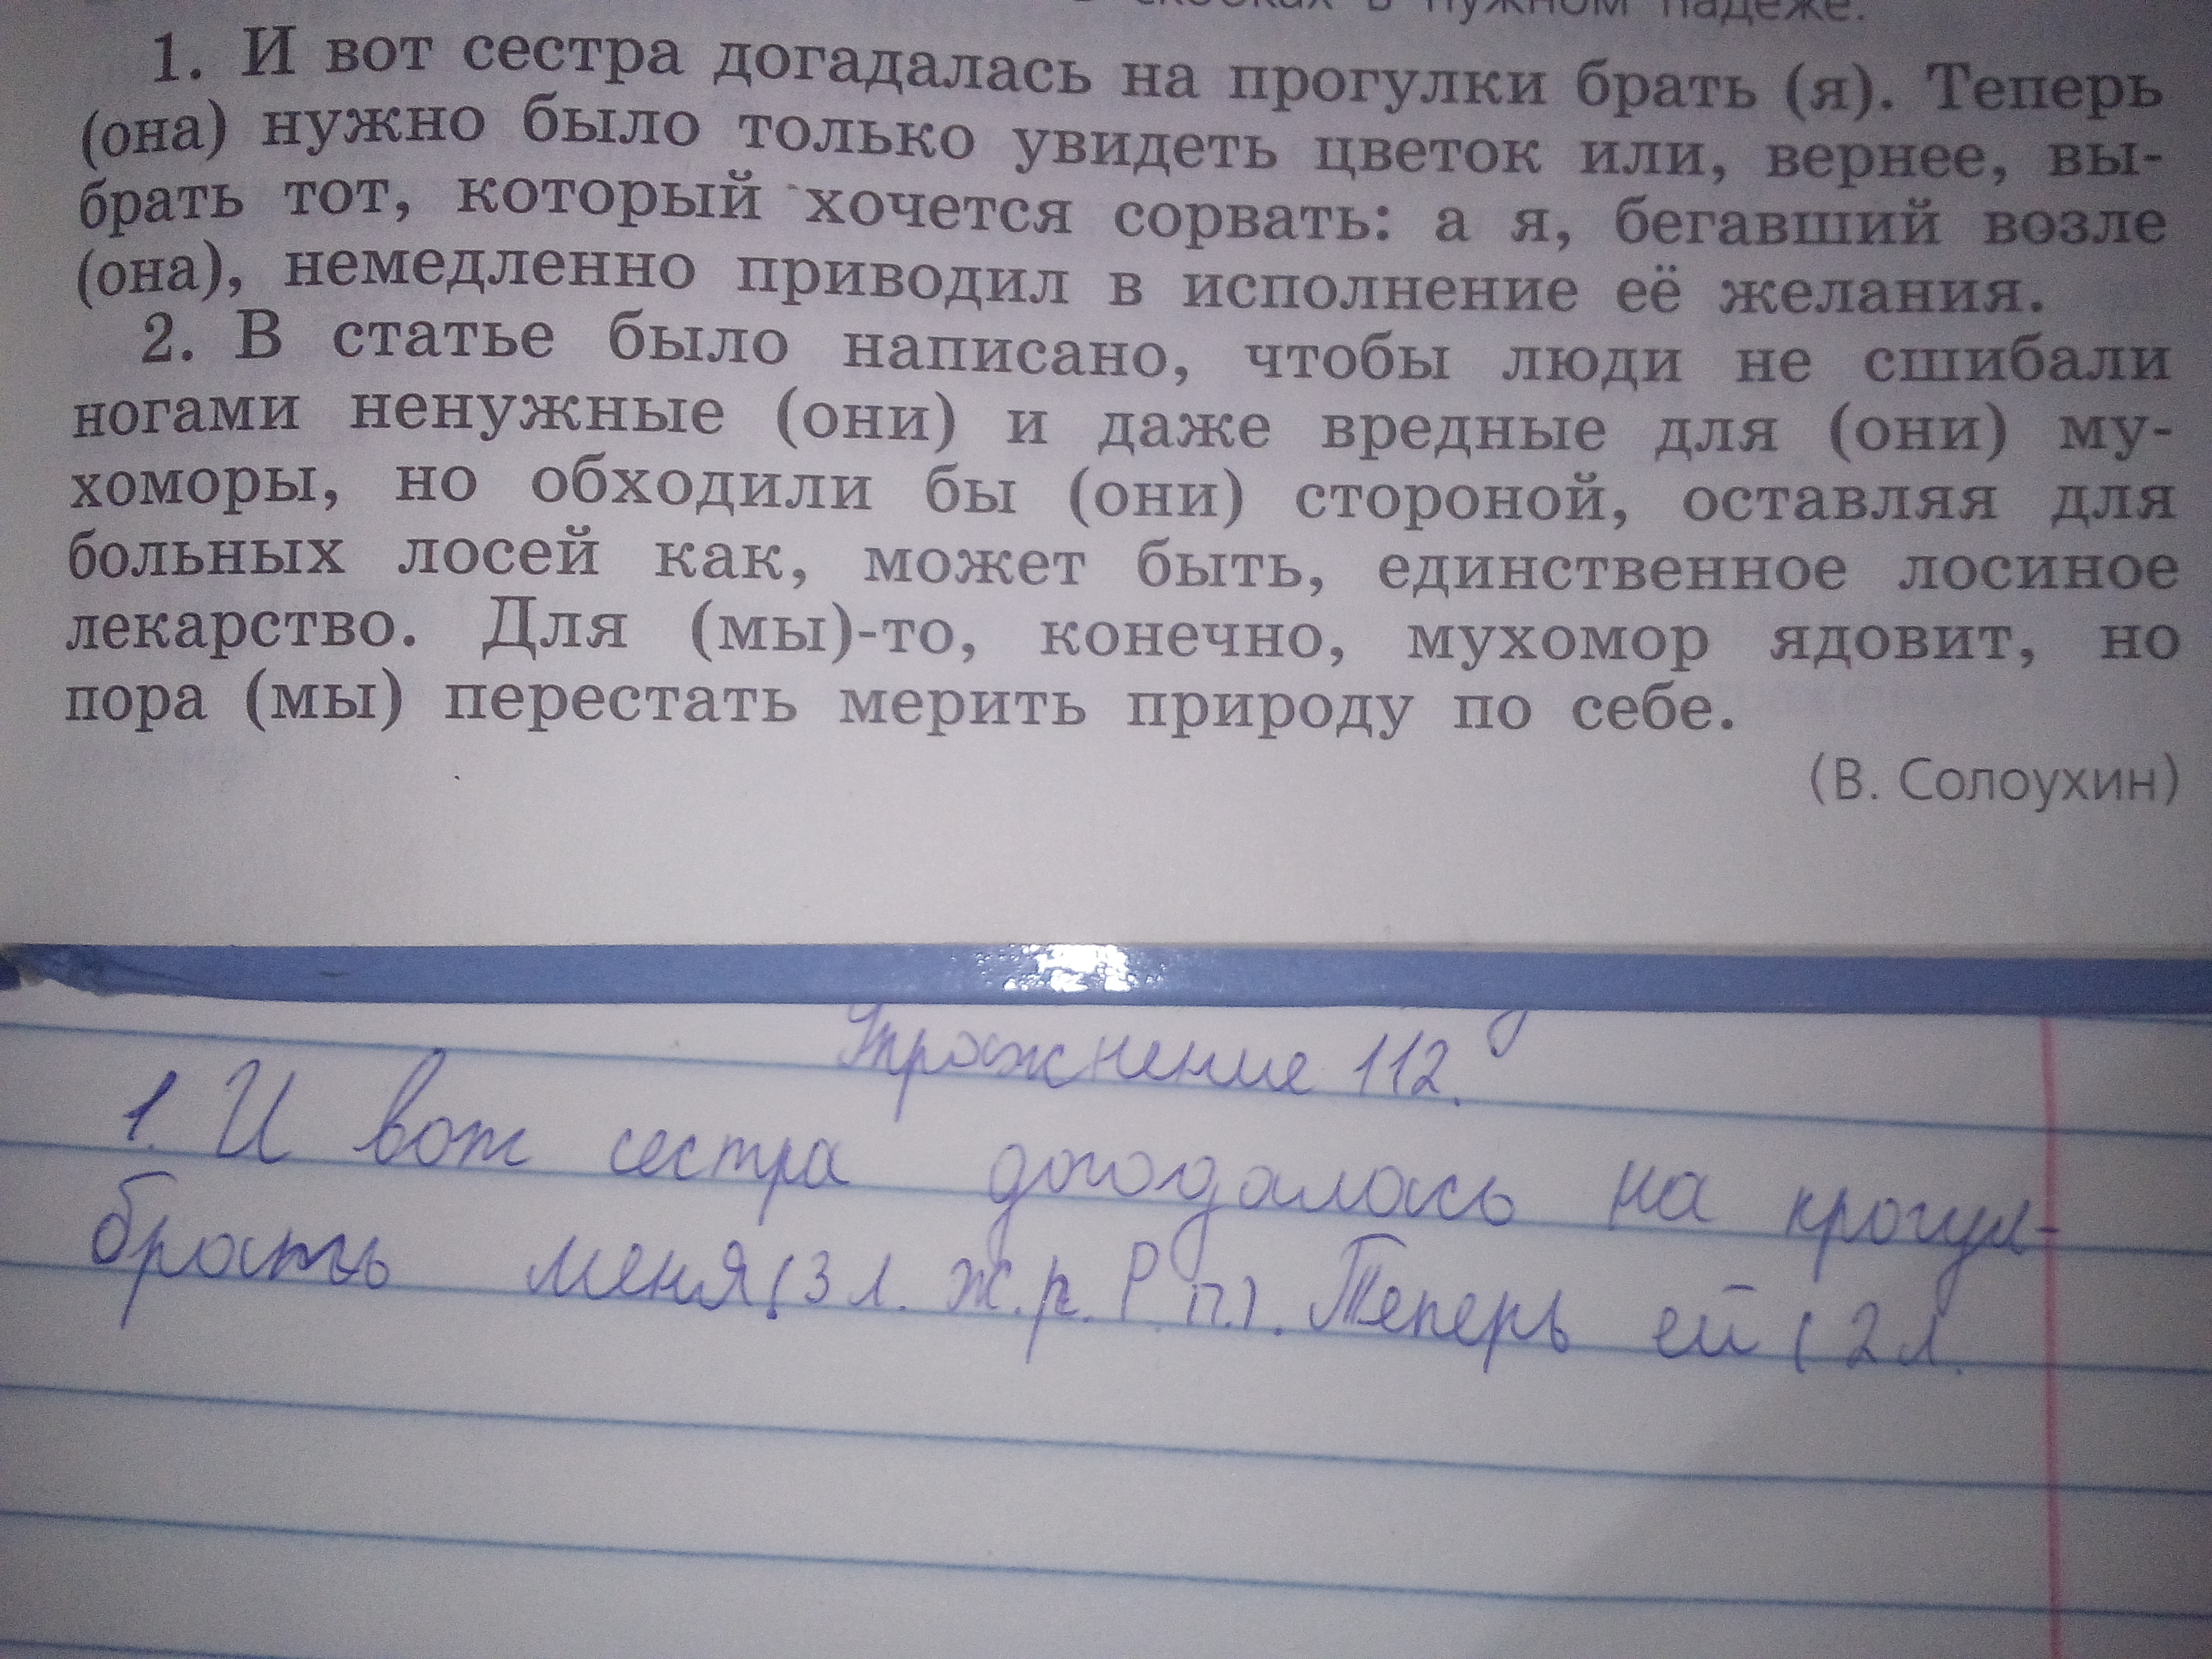 в скобках в нужном падеже.
1. И вот сестра догадалась на прогулки брать (я). Теперь
(она) нужно было только увидеть цветок или, вернее, вы-
брать тот, который хочется сорвать: а я, бегавший возле
(она), немедленно приводил в исполнение её желания.
2. В статье было написано, чтобы люди не сшибали
ногами ненужные (они) и даже вредные для (они) му-
хоморы, но обходили бы (они) стороной, оставляя для
больных лосей как, может быть, единственное лосиное
лекарство. Для (мы)-то, конечно, мухомор ядовит, но
пора (мы) перестать мерить природу по себе.
(В. Солоухин)
Упражнение 112.
1. И вот сестра догадалась на прогул-
брать меня (3 л. ж.р. Р.п.). Теперь ей (2 л.